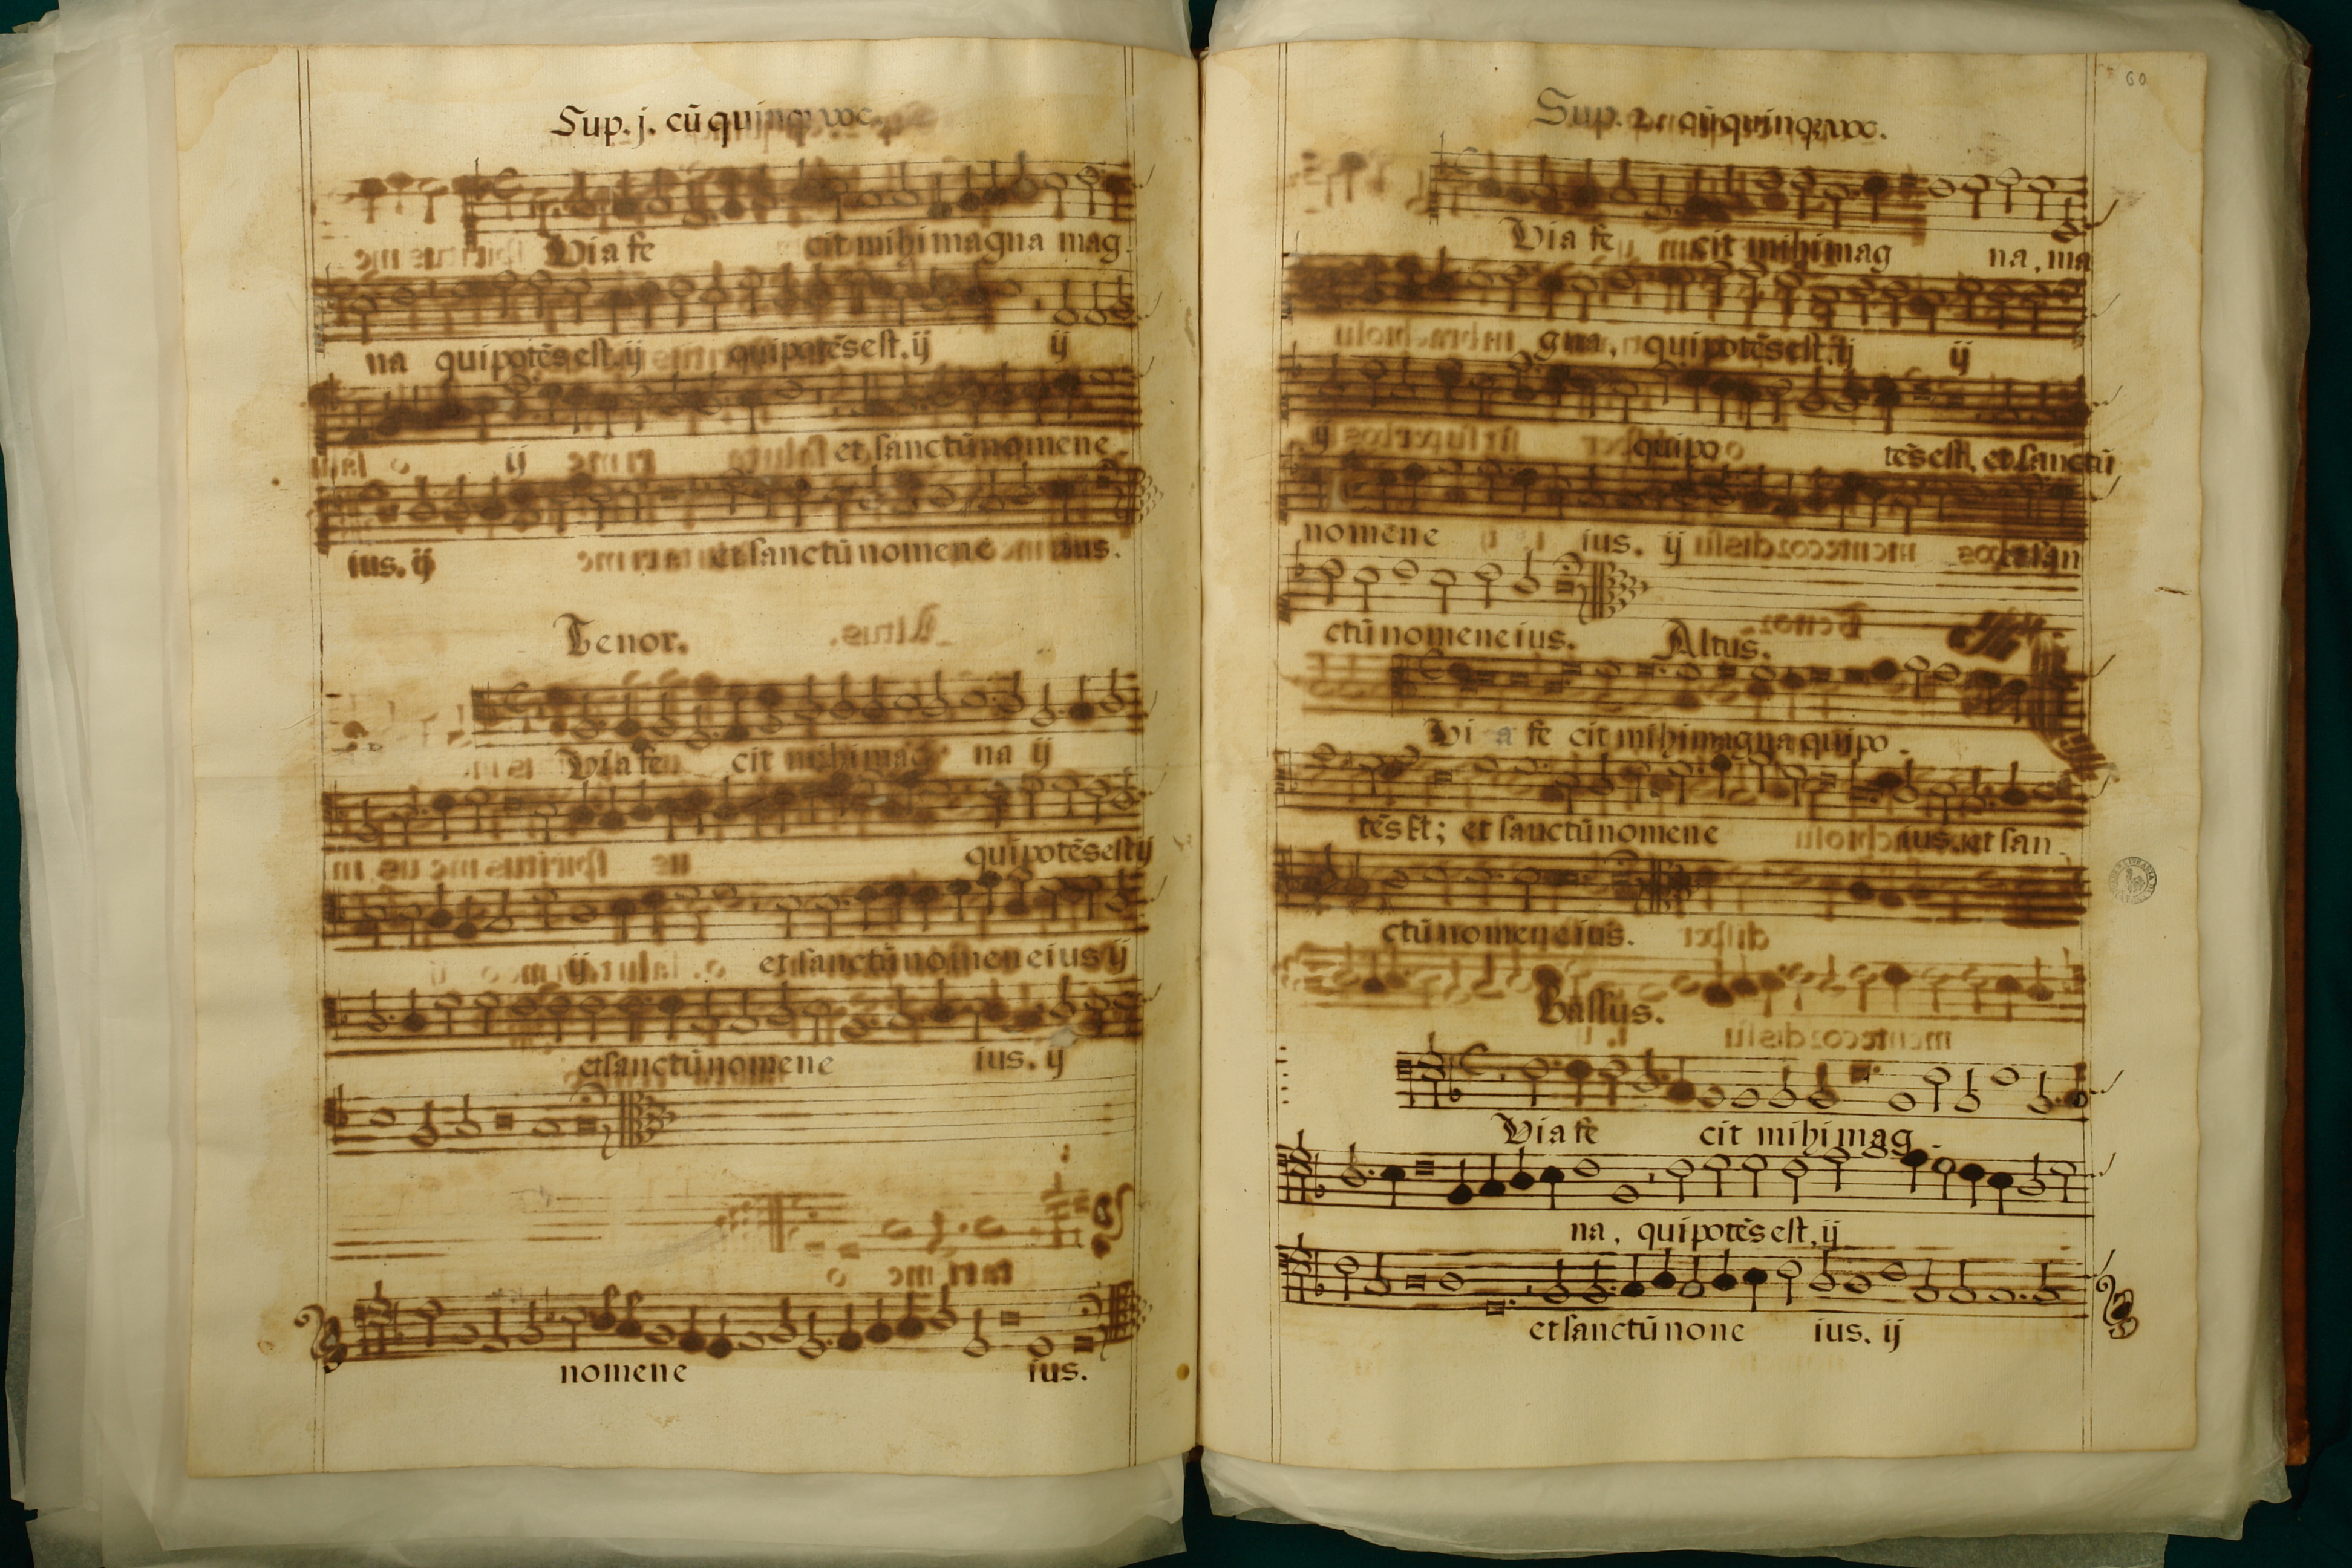 Sup. j. cū quinq; voc.
Via fe cit mihi magna mag
na qui potēs est. ij qui potēs est. ij ij
ij et sanctū nomen e
ius. ij et sanctū nomen e ius.
Tenor.
Via fe cit mihi mag na ij
qui potēs est ij
ij et sanctū nomen eius ij
et sanctū nomen e ius. ij
nomen e ius.
60
Sup. 2. cū quinq; voc.
Via fe cit mihi mag na, ma
gna, qui potēs est. ij ij
ij qui po tēs est, et sanctū
nomen e ius. ij et san
ctū nomen eius. Altus.
Vi a fe cit mihi magna qui po
tēs est; et sanctū nomen e ius. et san
ctū nomen eius.
Bassus.
Via fe cit mihi mag
na, qui potēs est, ij
et sanctū none ius. ij